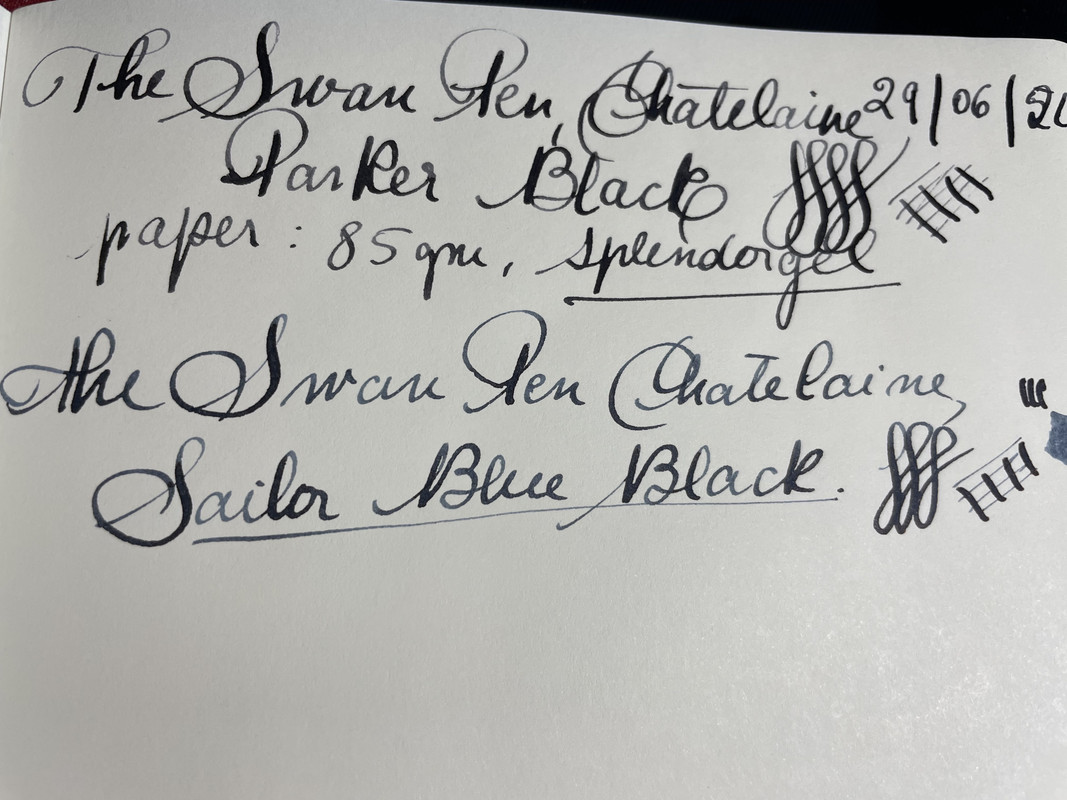 The Swan Pen, Chatelaine 29/06/
Parker Black
paper: 85 gm, splendorgel
the Swan Pen Chatelaine,
Sailor Blue Black.